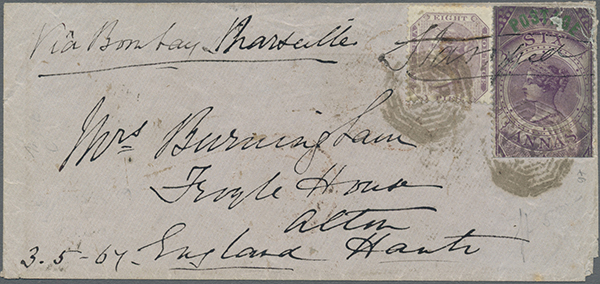 Via Bombay Marseille
EIGHT
POSTAGE
SIX
ANNAS
Mrs Burningham
Froyle House
Alton
3.5-67. England Hants